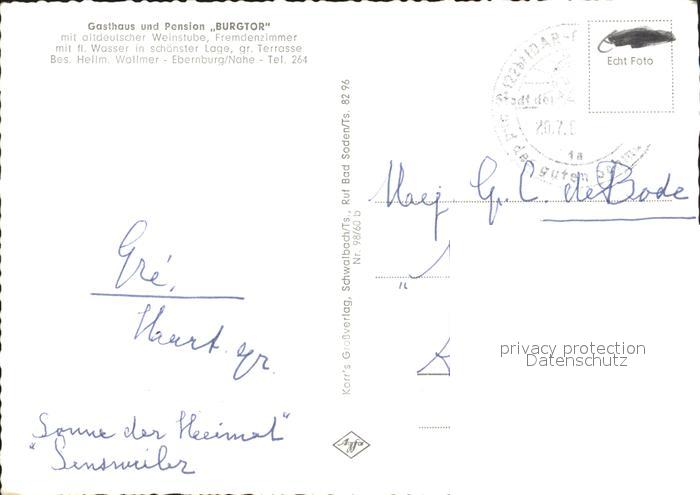 Gasthaus und Pension „BURGTOR"
mit altdeutscher Weinstube, Fremdenzimmer
mit fl. Wasser in schönster Lage, gr. Terrasse
Bes. Hellm. Wollmer - Ebernburg/Nahe - Tel. 264
Korr's Großverlag, Schwalbach/Ts., Ruf Bad Soden/Ts. 82 96
Nr. 98/60 b
(22b) IDAR-
Stadt der
20.7.
1a
guten
Echt Foto
Mej. G. C. de Bode
"
Gré.
Haart. gr.
Sonne der Heimat"
"Sensweiler
Agfa
privacy protection
Datenschutz